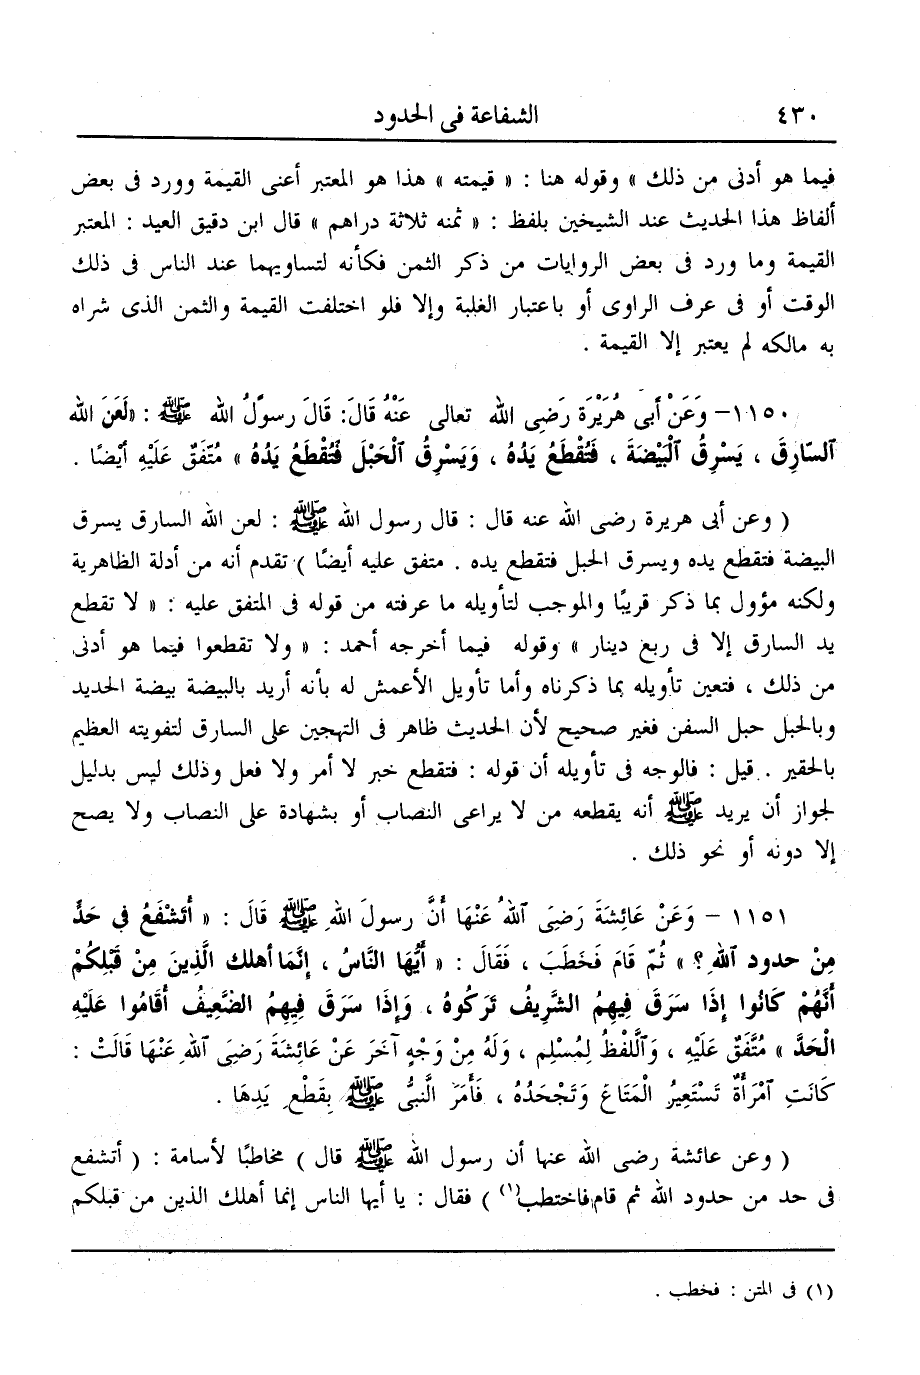 ٤٣٠ الشفاعة فى الحدود
فيما هو أدنى من ذلك » وقوله هنا : « قيمته » هذا هو المعتبر أعنى القيمة وورد فى بعض
ألفاظ هذا الحديث عند الشيخين بلفظ : « ثمنه ثلاثة دراهم » قال ابن دقيق العيد : المعتبر
القيمة وما ورد فى بعض الروايات من ذكر الثمن فكأنه لتساويهما عند الناس فى ذلك
الوقت أو فى عرف الراوى أو باعتبار الغلبة وإلا فلو اختلفت القيمة والثمن الذى شراه
به مالكه لم يعتبر إلا القيمة .
١١٥٠- وَعَنْ أَبى هُرَيْرَة رَضِى الله تعالى عَنْهُ قَالَ: قَالَ رسولُ الله ﷺ : «لَعَنَ الله
ٱلسّارِقَ ، يَسْرِقُ ٱلْبَيْضَةَ ، فَتُقْطَعُ يَدُهُ ، وَيَسْرِقُ ٱلْحَبْلَ فَتُقْطَعُ يَدُهُ » مُتّفَقٌ عَلَيْهِ أيْضًا .
( وعن أبى هريرة رضى الله عنه قال : قال رسول الله ﷺ : لعن الله السارق يسرق
البيضة فتقطع يده ويسرق الحبل فتقطع يده . متفق عليه أيضًا ) تقدم أنه من أدلة الظاهرية
ولكنه مؤول بما ذكر قريبًا والموجب لتأويله ما عرفته من قوله فى المتفق عليه : « لا تقطع
يد السارق إلا فى ربع دينار » وقوله فيما أخرجه أحمد : « ولا تقطعوا فيما هو أدنى
من ذلك ، فتعين تأويله بما ذكرناه وأما تأويل الأعمش له بأنه أريد بالبيضة بيضة الحديد
وبالحبل حبل السفن فغير صحيح لأن الحديث ظاهر فى التهجين على السارق لتفويته العظيم
بالحقير . قيل : فالوجه فى تأويله أن قوله : فتقطع خبر لا أمر ولا فعل وذلك ليس بدليل
لجواز أن يريد ﷺ أنه يقطعه من لا يراعى النصاب أو بشهادة على النصاب ولا يصح
إلا دونه أو نحو ذلك .
١١٥١ - وَعَنْ عَائِشَةَ رَضِىَ ٱللهُ عَنْهَا أَنَّ رسولَ اللهِ ﷺ قَالَ : « أَتَشْفَعُ فى حَدٍّ
مِنْ حدود ٱللهِ ؟ » ثُمّ قَامَ فَخَطَبَ ، فَقَالَ : « أَيُّهَا النَّاسُ ، إِنَّمَا أهلك الَّذِينَ مِنْ قَبْلِكُمْ
أَنَّهُمْ كَانُوا إِذَا سَرَقَ فِيهِمُ الشَّرِيفُ تَرَكُوهُ ، وَإِذَا سَرَقَ فِيهِمُ الضَّعِيفُ أَقَامُوا عَلَيْهِ
الْحَدَّ » مُتَّفَقٌ عَلَيْهِ ، وَٱللَّفْظُ لِمُسْلِم ، وَلَهُ مِنْ وَجْهٍ آخَرَ عَنْ عَائِشَةَ رَضِىَ ٱللهِ عَنْهَا قَالَتْ :
كَانَتِ ٱمْرَأَةٌ تَسْتَعِيرُ الْمَتَاعَ وَتَجْحَدُهُ ، فَأَمَرَ الَّنبىُّ ﷺ بِقَطْعِ يَدِهَا .
( وعن عائشة رضى الله عنها أن رسول الله ﷺ قال ) مخاطبًا لأسامة : ( أتشفع
فى حد من حدود الله ثم قام فاختطب(١) ) فقال : يا أيها الناس إنما أهلك الذين من قبلكم
(١) فى المتن : فخطب .